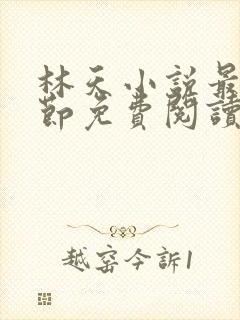 林天小説最
節免費閱讀
越窑今訴1